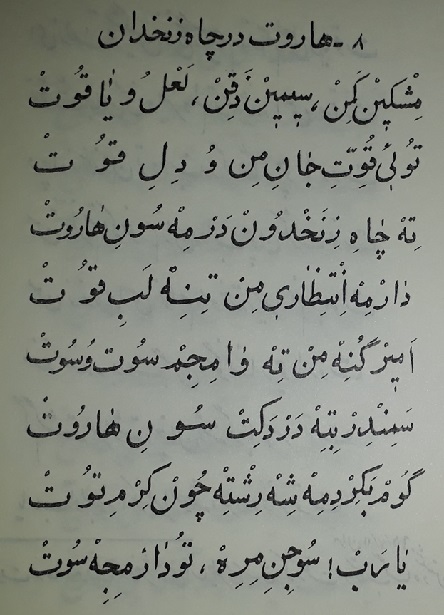 ۸ـ هاروت در چاه زنخدان
مِشْکِینْ کَمِنْ، سِیمِینْ ذَقِنْ، لَعْلُ و یٰاقُوتْ
تُوئیْ قُوّتِ جٰانِ مِن وُ دِلِ قُوتْ
تِهْ چٰاهِ زِنَخْدُونْ دَرْمِهْ سُونِ هٰارُوتْ
دٰارْمِهْ اِنْتِظٰاری مِنْ تِنِهْ لَبِ قُوتْ
اَمِیرْ گُنِهْ مِنْ تِهْ وٰا مِجِمْ سُوت وُ سُوتْ
سَمِنْدِرْ تِیِهْ دَرْدَکِتْ سُونِ هٰارُوتْ
گُومْ بَکِرْدِمِهْ شِهْ رِشْتِهْ چُونْ کِرْمِ تُوتْ
یٰا رَبْ! سُوجِنِ مِرِهْ، تُو دٰارْ مِجِهْ سُوتْ